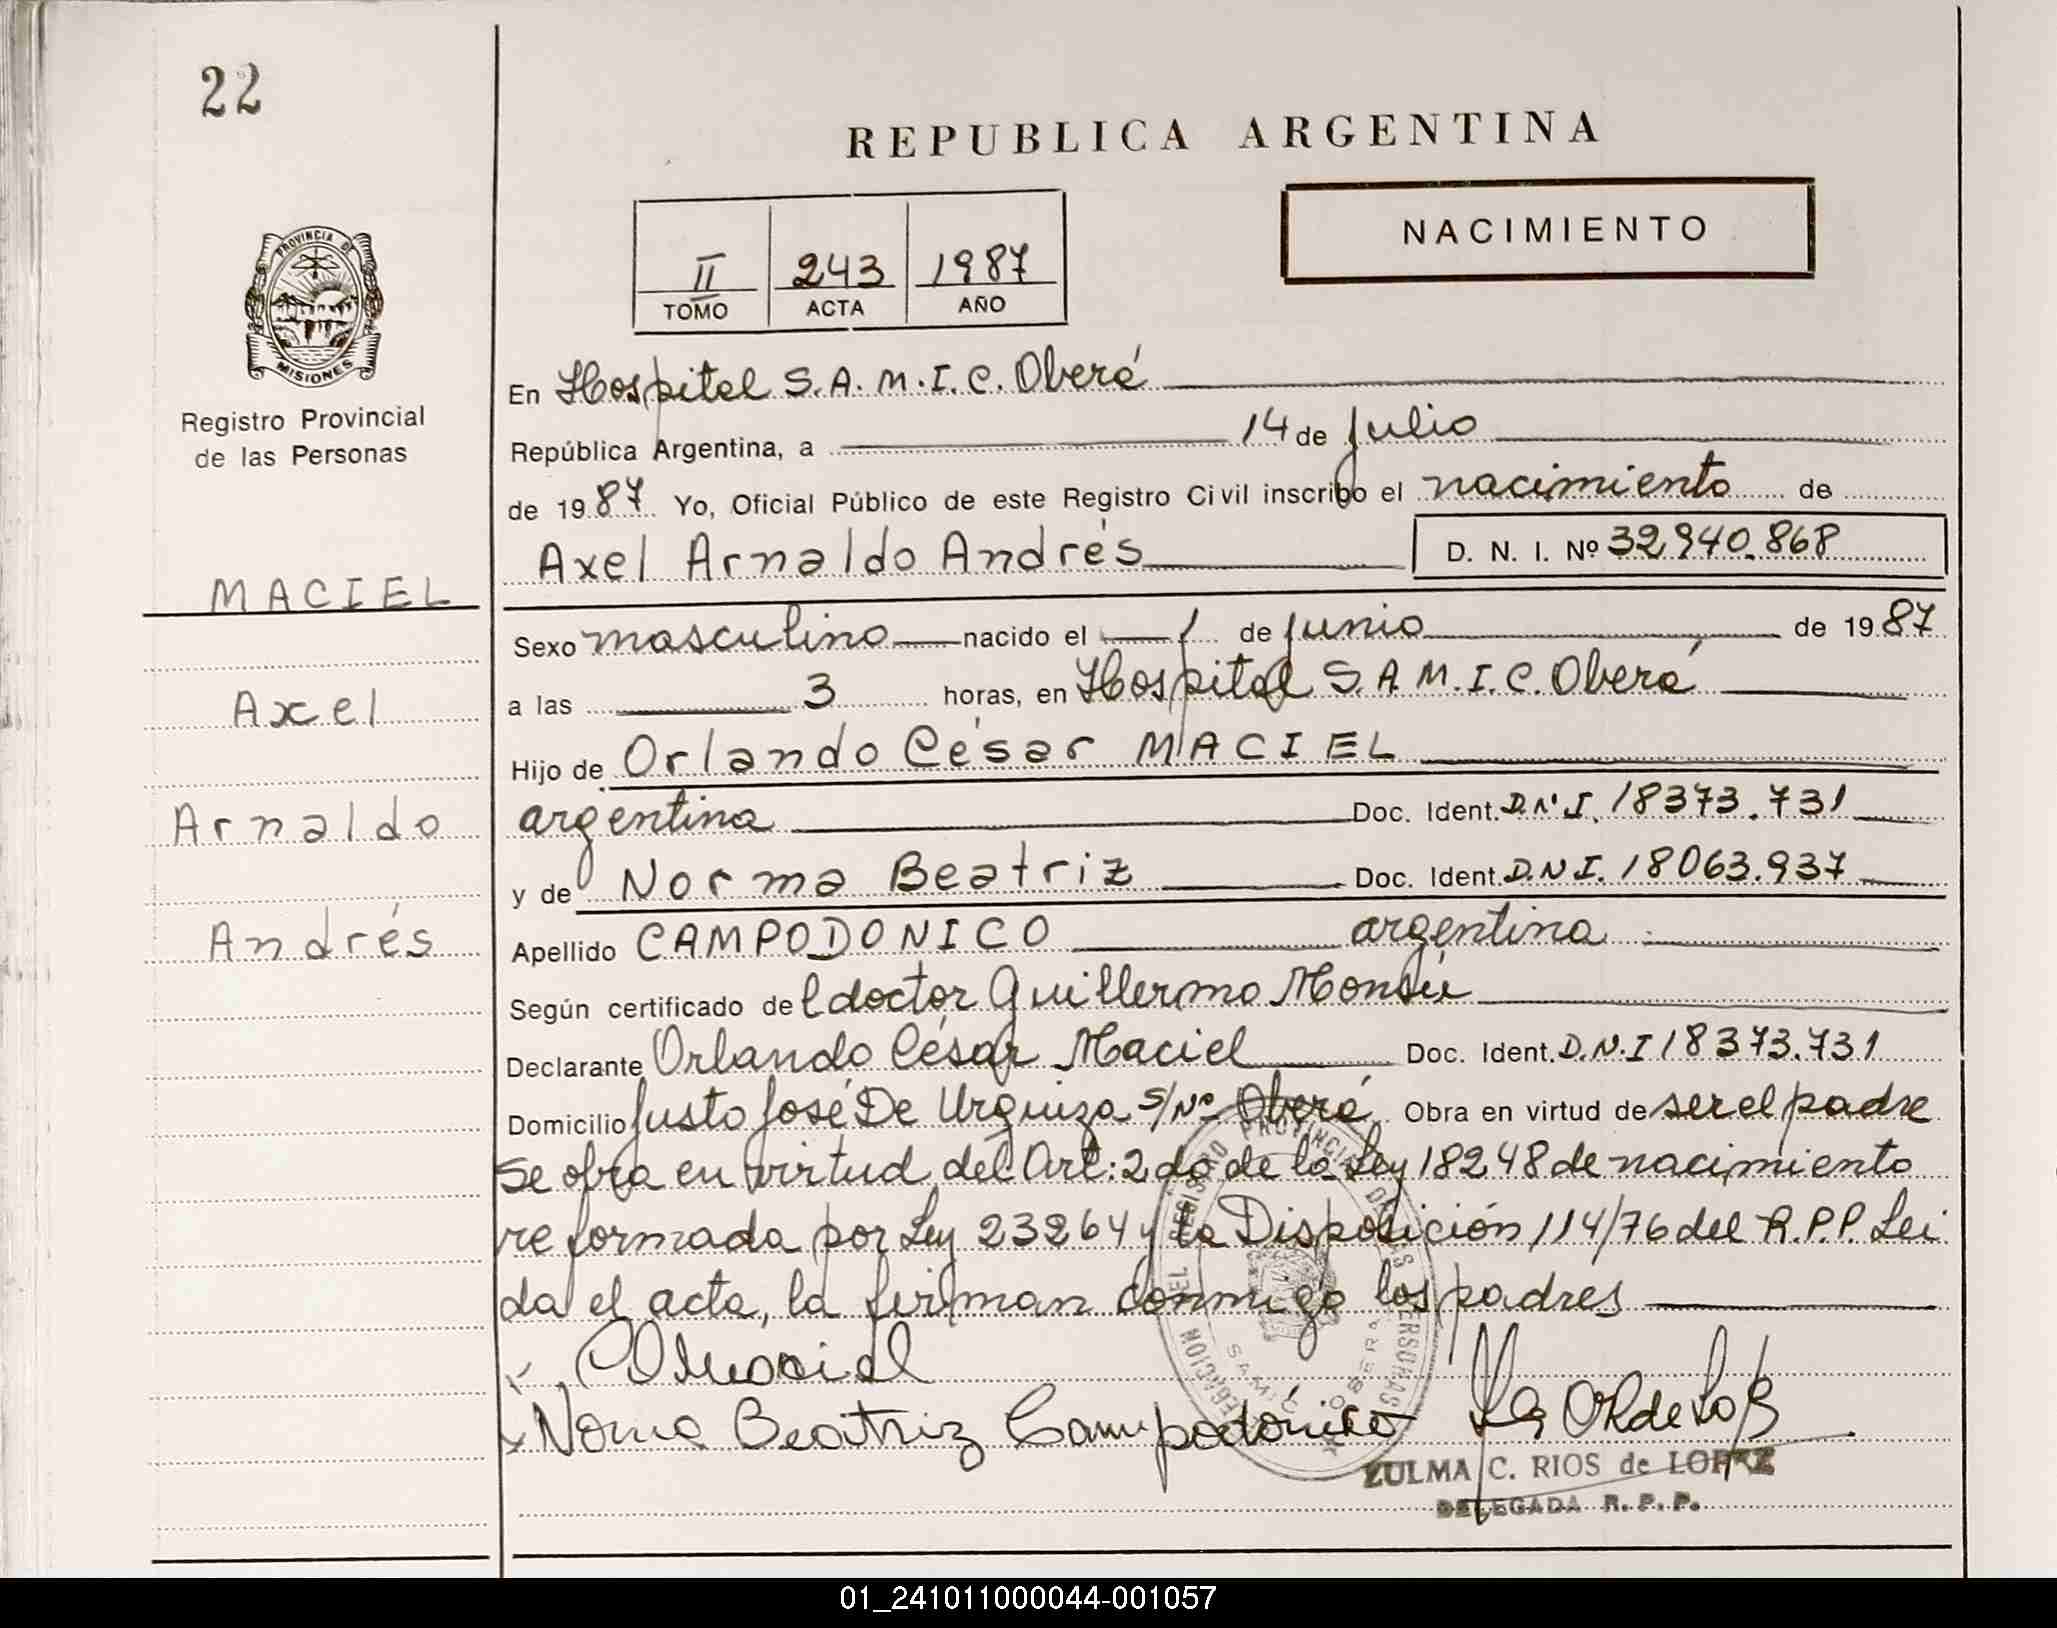 22
REPUBLICA ARGENTINA
NACIMIENTO
II 243 1987
TOMO ACTA AÑO
PROVINCIA DE
MISIONES
Registro Provincial
de las Personas
MACIEL
Axel
Arnaldo
Andrés
En Hospital S.A.M.I.C. Oberá
República Argentina, a 14 de Julio
de 1987 Yo, Oficial Público de este Registro Civil inscribo el nacimiento de
Axel Arnaldo Andrés D. N. I. Nº 32.940.868
Sexo masculino nacido el 1 de Junio de 1987
a las 3 horas, en Hospital S.A.M.I.C. Oberá
Hijo de Orlando César MACIEL
argentina Doc. Ident. D.N.I. 18373.731
y de Norma Beatriz Doc. Ident. D.N.I. 18063.937
Apellido CAMPODONICO argentina
Según certificado del doctor Guillermo
Declarante Orlando César Maciel Doc. Ident. D.N.I 18373.731
Domicilio Justo José De Urquiza S/Nº Oberá Obra en virtud de ser el padre
Se obra en virtud del Art: 2do de la Ley 18248 de nacimiento
reformada por Ley 23264 y la Disposición 114/76 del R.P.P. Lei
da el acta, la firman conmigo los padres
Norma Beatriz Campodónico
ZULMA C. RIOS de LOPEZ
DELEGADA R. P. P.
REGISTRO PROVINCIAL DE LAS PERSONAS
DELEGACION
SAMIC OBERA
01_241011000044-001057